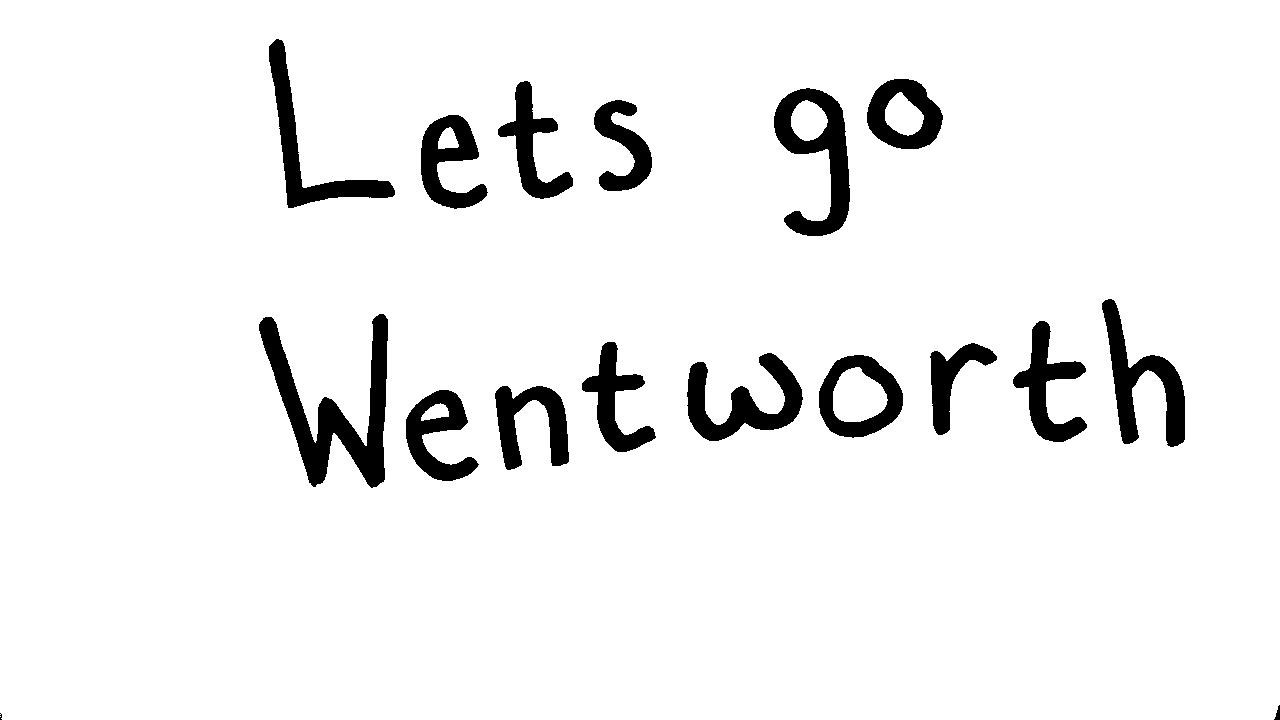 Lets go
Wentworth